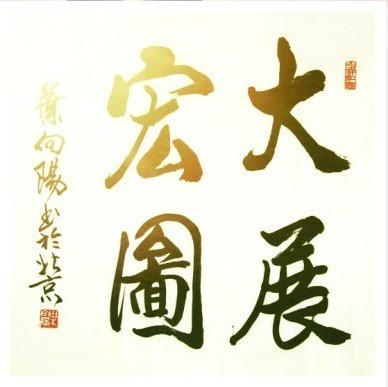 大展
宏圖
葉向陽书於北京